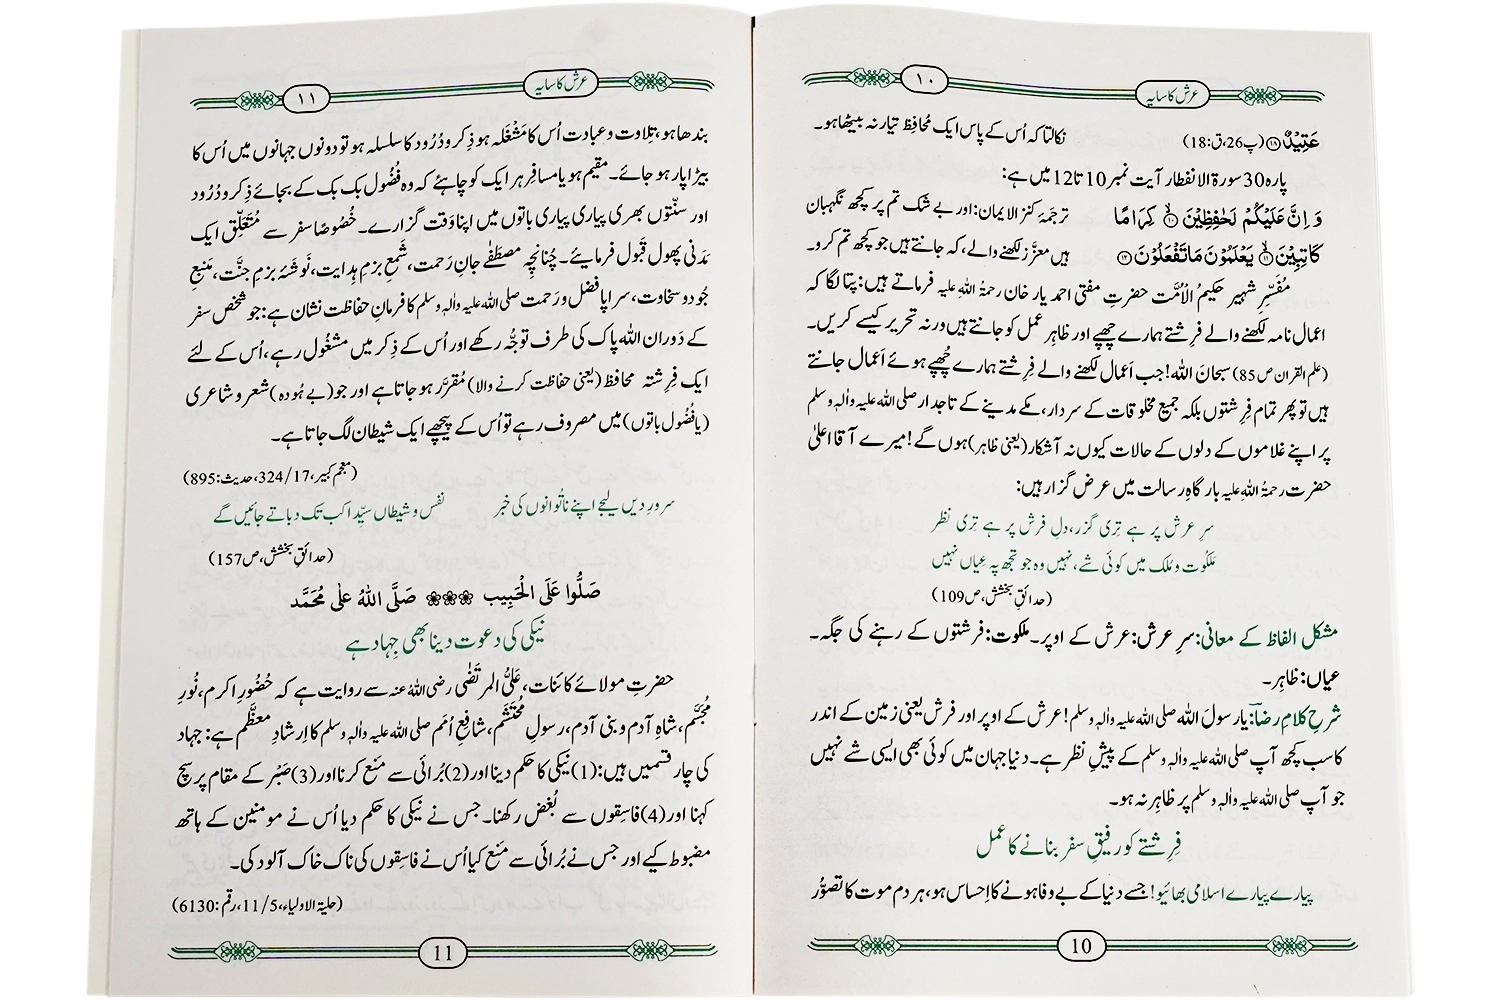 عرش کا سایہ
۱۰
عَتِیْدٌ ﴿۱۸﴾ (پ26،ق:18) نکالتا کہ اُس کے پاس ایک مُحافِظ تیار نہ بیٹھا ہو۔
پارہ30 سورۃ الانفطار آیت نمبر10 تا12 میں ہے:
وَ اِنَّ عَلَیْكُمْ لَحٰفِظِیْنَ ﴿۱۰﴾ كِرَامًا ترجَمۂ کنز الایمان: اور بے شک تم پر کچھ نگہبان
كَاتِبِیْنَ ﴿۱۱﴾ یَعْلَمُوْنَ مَا تَفْعَلُوْنَ ﴿۱۲﴾ ہیں معزّز لکھنے والے، کہ جانتے ہیں جو کچھ تم کرو۔
مُفَسِّرِ شہیر حکیمُ الْاُمَّت حضرتِ مفتی احمد یار خان رحمۃُ اللہِ علیہ فرماتے ہیں: پتا لگا کہ
اعمال نامہ لکھنے والے فرشتے ہمارے چھپے اور ظاہر عمل کو جانتے ہیں ورنہ تحریر کیسے کریں۔
(علم القران ص85) سبحانَ اللہ! جب اَعمال لکھنے والے فِرِشتے ہمارے چُھپے ہوئے اَعمال جانتے
ہیں تو پھر تمام فِرِشتوں بلکہ جمیع مخلوقات کے سردار، مکے مدینے کے تاجدار صلی اللہ علیہ واٰلہٖ وسلم
پر اپنے غلاموں کے دلوں کے حالات کیوں نہ آشکار (یعنی ظاہر) ہوں گے! میرے آقا اعلیٰ
حضرت رحمۃُ اللہِ علیہ بارگاہِ رسالت میں عرض گزار ہیں:
سرِ عرش پر ہے تِری گزر، دلِ فرش پر ہے تِری نظر
مَلَکُوت و مُلک میں کوئی شے، نہیں وہ جو تجھ پہ عِیاں نہیں
(حدائقِ بخشش، ص109)
مشکل الفاظ کے معانی: سرِ عرش: عرش کے اوپر۔ ملکوت: فرشتوں کے رہنے کی جگہ۔
عیاں: ظاہر۔
شرحِ کلامِ رضا: یا رسولَ اللہ صلی اللہ علیہ واٰلہٖ وسلم! عرش کے اوپر اور فرش یعنی زمین کے اندر
کا سب کچھ آپ صلی اللہ علیہ واٰلہٖ وسلم کے پیشِ نظر ہے۔ دنیا جہان میں کوئی بھی ایسی شے نہیں
جو آپ صلی اللہ علیہ واٰلہٖ وسلم پر ظاہر نہ ہو۔
فِرِشتے کو رفیقِ سفر بنانے کا عمل
پیارے پیارے اسلامی بھائیو! جسے دنیا کے بے وفا ہونے کا اِحساس ہو، ہر دم موت کا تصوُّر
10
عرش کا سایہ
۱۱
بندھا ہو، تِلاوت و عبادت اُس کا مَشْغَلہ ہو ذِکر و دُرُود کا سلسلہ ہو تو دونوں جہانوں میں اُس کا
بیڑا پار ہو جائے۔ مقیم ہو یا مسافر ہر ایک کو چاہئے کہ وہ فُضُول بک بک کے بجائے ذِکر و دُرُود
اور سنّتوں بھری پیاری پیاری باتوں میں اپنا وَقت گزارے۔ خُصُوصًا سفر سے مُتَعَلِّق ایک
مَدَنی پھول قَبول فرمایئے۔ چُنانچِہ مصطفٰے جانِ رَحمت، شَمعِ بزمِ ہِدایت، نَوشَۂ بزمِ جنَّت، مَنبَعِ
جُود و سخاوت، سراپا فضل و رَحمت صلی اللہ علیہ واٰلہٖ وسلم کا فرمانِ حفاظت نشان ہے: جو شخص سفر
کے دَوران اللہ پاک کی طرف توجُّہ رکھے اور اُس کے ذِکر میں مشغُول رہے، اُس کے لئے
ایک فِرِشتہ محافظ (یعنی حفاظت کرنے والا) مُقرَّر ہو جاتا ہے اور جو (بے ہُودہ) شعر و شاعری
(یا فُضُول باتوں) میں مصروف رہے تو اُس کے پیچھے ایک شیطان لگ جاتا ہے۔
(معجم کبیر، 17/324، حدیث:895)
سرورِ دیں لیجے اپنے ناتُوانوں کی خبر نفس و شیطاں سیِّدا کب تک دباتے جائیں گے
(حدائقِ بخشش، ص157)
صَلُّوا عَلَى الْحَبِیب ❀❀❀ صَلَّى اللهُ عَلٰى مُحَمَّد
نیکی کی دعوت دینا بھی جہاد ہے
حضرتِ مولائے کائنات، علیُّ المرتَضٰی رضی اللہُ عنہ سے روایت ہے کہ حُضُورِ اکرم، نُورِ
مُجَسَّم، شاہِ آدم و بنی آدم، رسولِ مُحْتَشَم، شافِعِ اُمَم صلی اللہ علیہ واٰلہٖ وسلم کا اِرشادِ معظَّم ہے: جہاد
کی چار قسمیں ہیں: (1) نیکی کا حکم دینا اور (2) بُرائی سے مَنع کرنا اور (3) صَبْر کے مقام پر سچ
کہنا اور (4) فاسِقوں سے بُغض رکھنا۔ جس نے نیکی کا حکم دیا اُس نے مومنین کے ہاتھ
مضبوط کیے اور جس نے بُرائی سے مَنع کیا اُس نے فاسِقوں کی ناک خاک آلود کی۔
(حلیۃ الاولیاء، 5/11، رقم:6130)
11